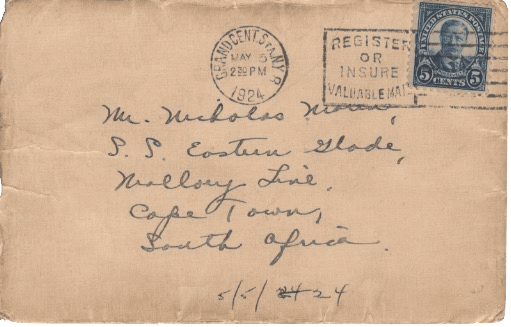 GRAND CENT. STA. N.Y.
MAY 5
2 PM
1924
REGISTER
OR
INSURE
VALUABLE MAIL
UNITED STATES POSTAGE
5 CENTS 5
Mr. Nicholas
S. S. Eastern Glade,
Mallory Line,
Cape Town,
South Africa.
5/5/24 24